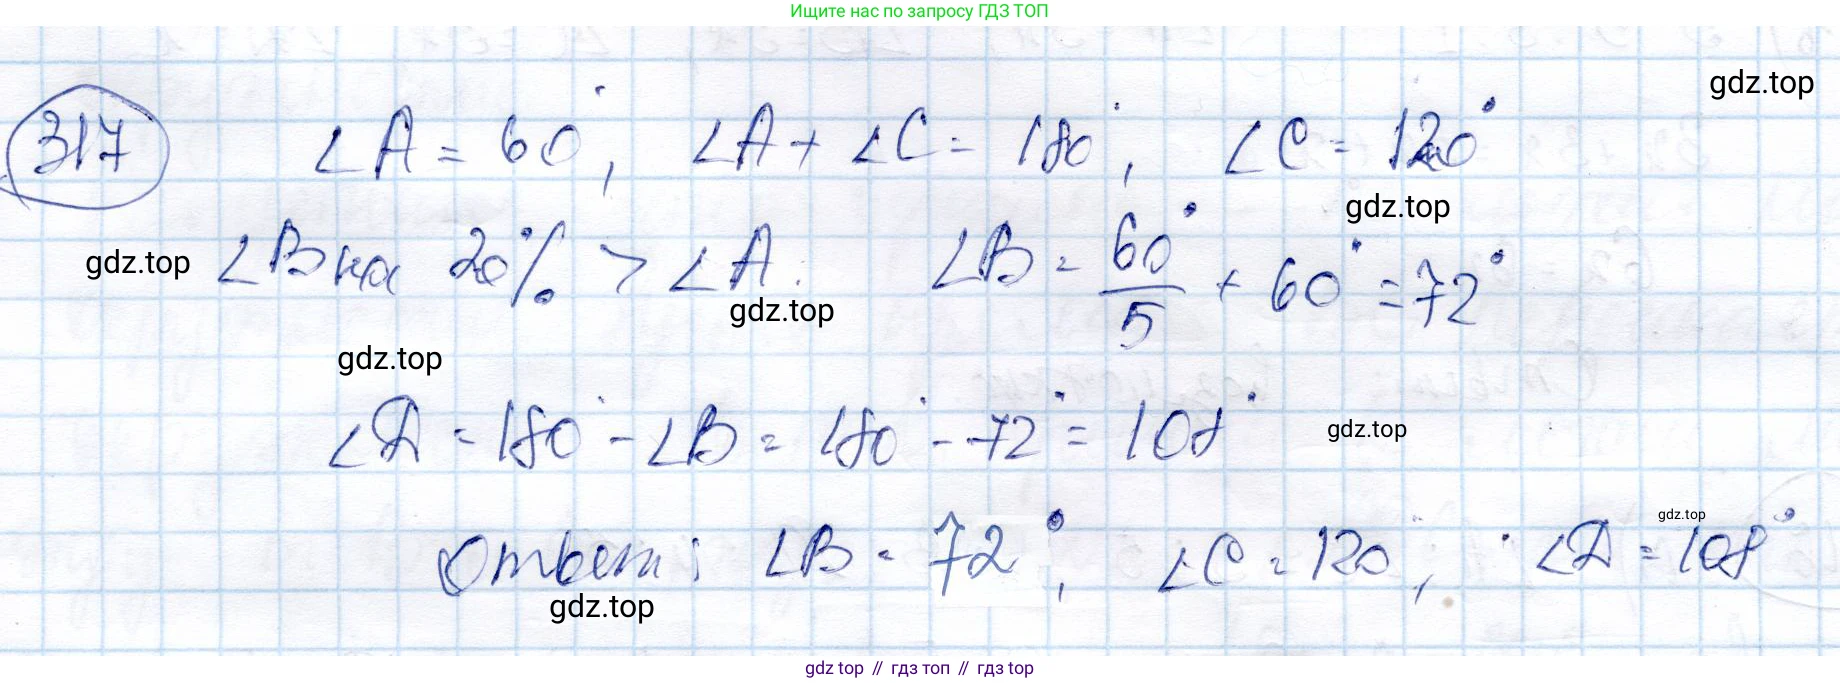 Ищите нас по запросу ГДЗ ТОП
gdz.top
317 ∠A = 60°, ∠A + ∠C = 180°, ∠C = 120°
gdz.top
∠B на 20% > ∠A. ∠B = 60°/5 + 60° = 72°
gdz.top
gdz.top
gdz.top
∠D = 180° - ∠B = 180° - 72° = 108°
gdz.top
gdz.top
Ответ: ∠B = 72°, ∠C = 120°, ∠D = 108°
gdz.top
gdz top // гдз топ // гдз top